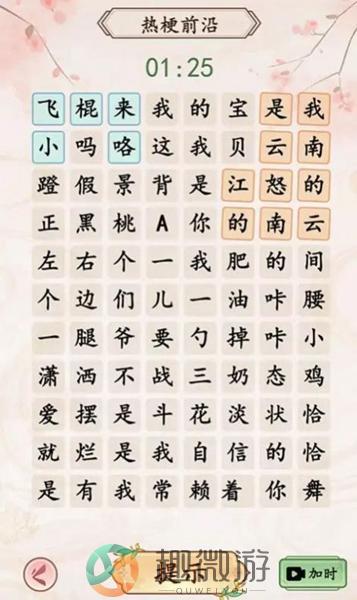 热梗前沿
01:25
飞棍来我的宝是我
小吗咯这我贝云南
蹬假景背是江怒的
正黑桃A你的南云
左右个一我肥的间
个边们儿一油咔腰
一腿爷要勺掉咔小
潇洒不战三奶态鸡
爱摆是斗花淡状恰
就烂是我自信的恰
是有我常赖着你舞
提示
加时
趣微游
QUWEIYOU